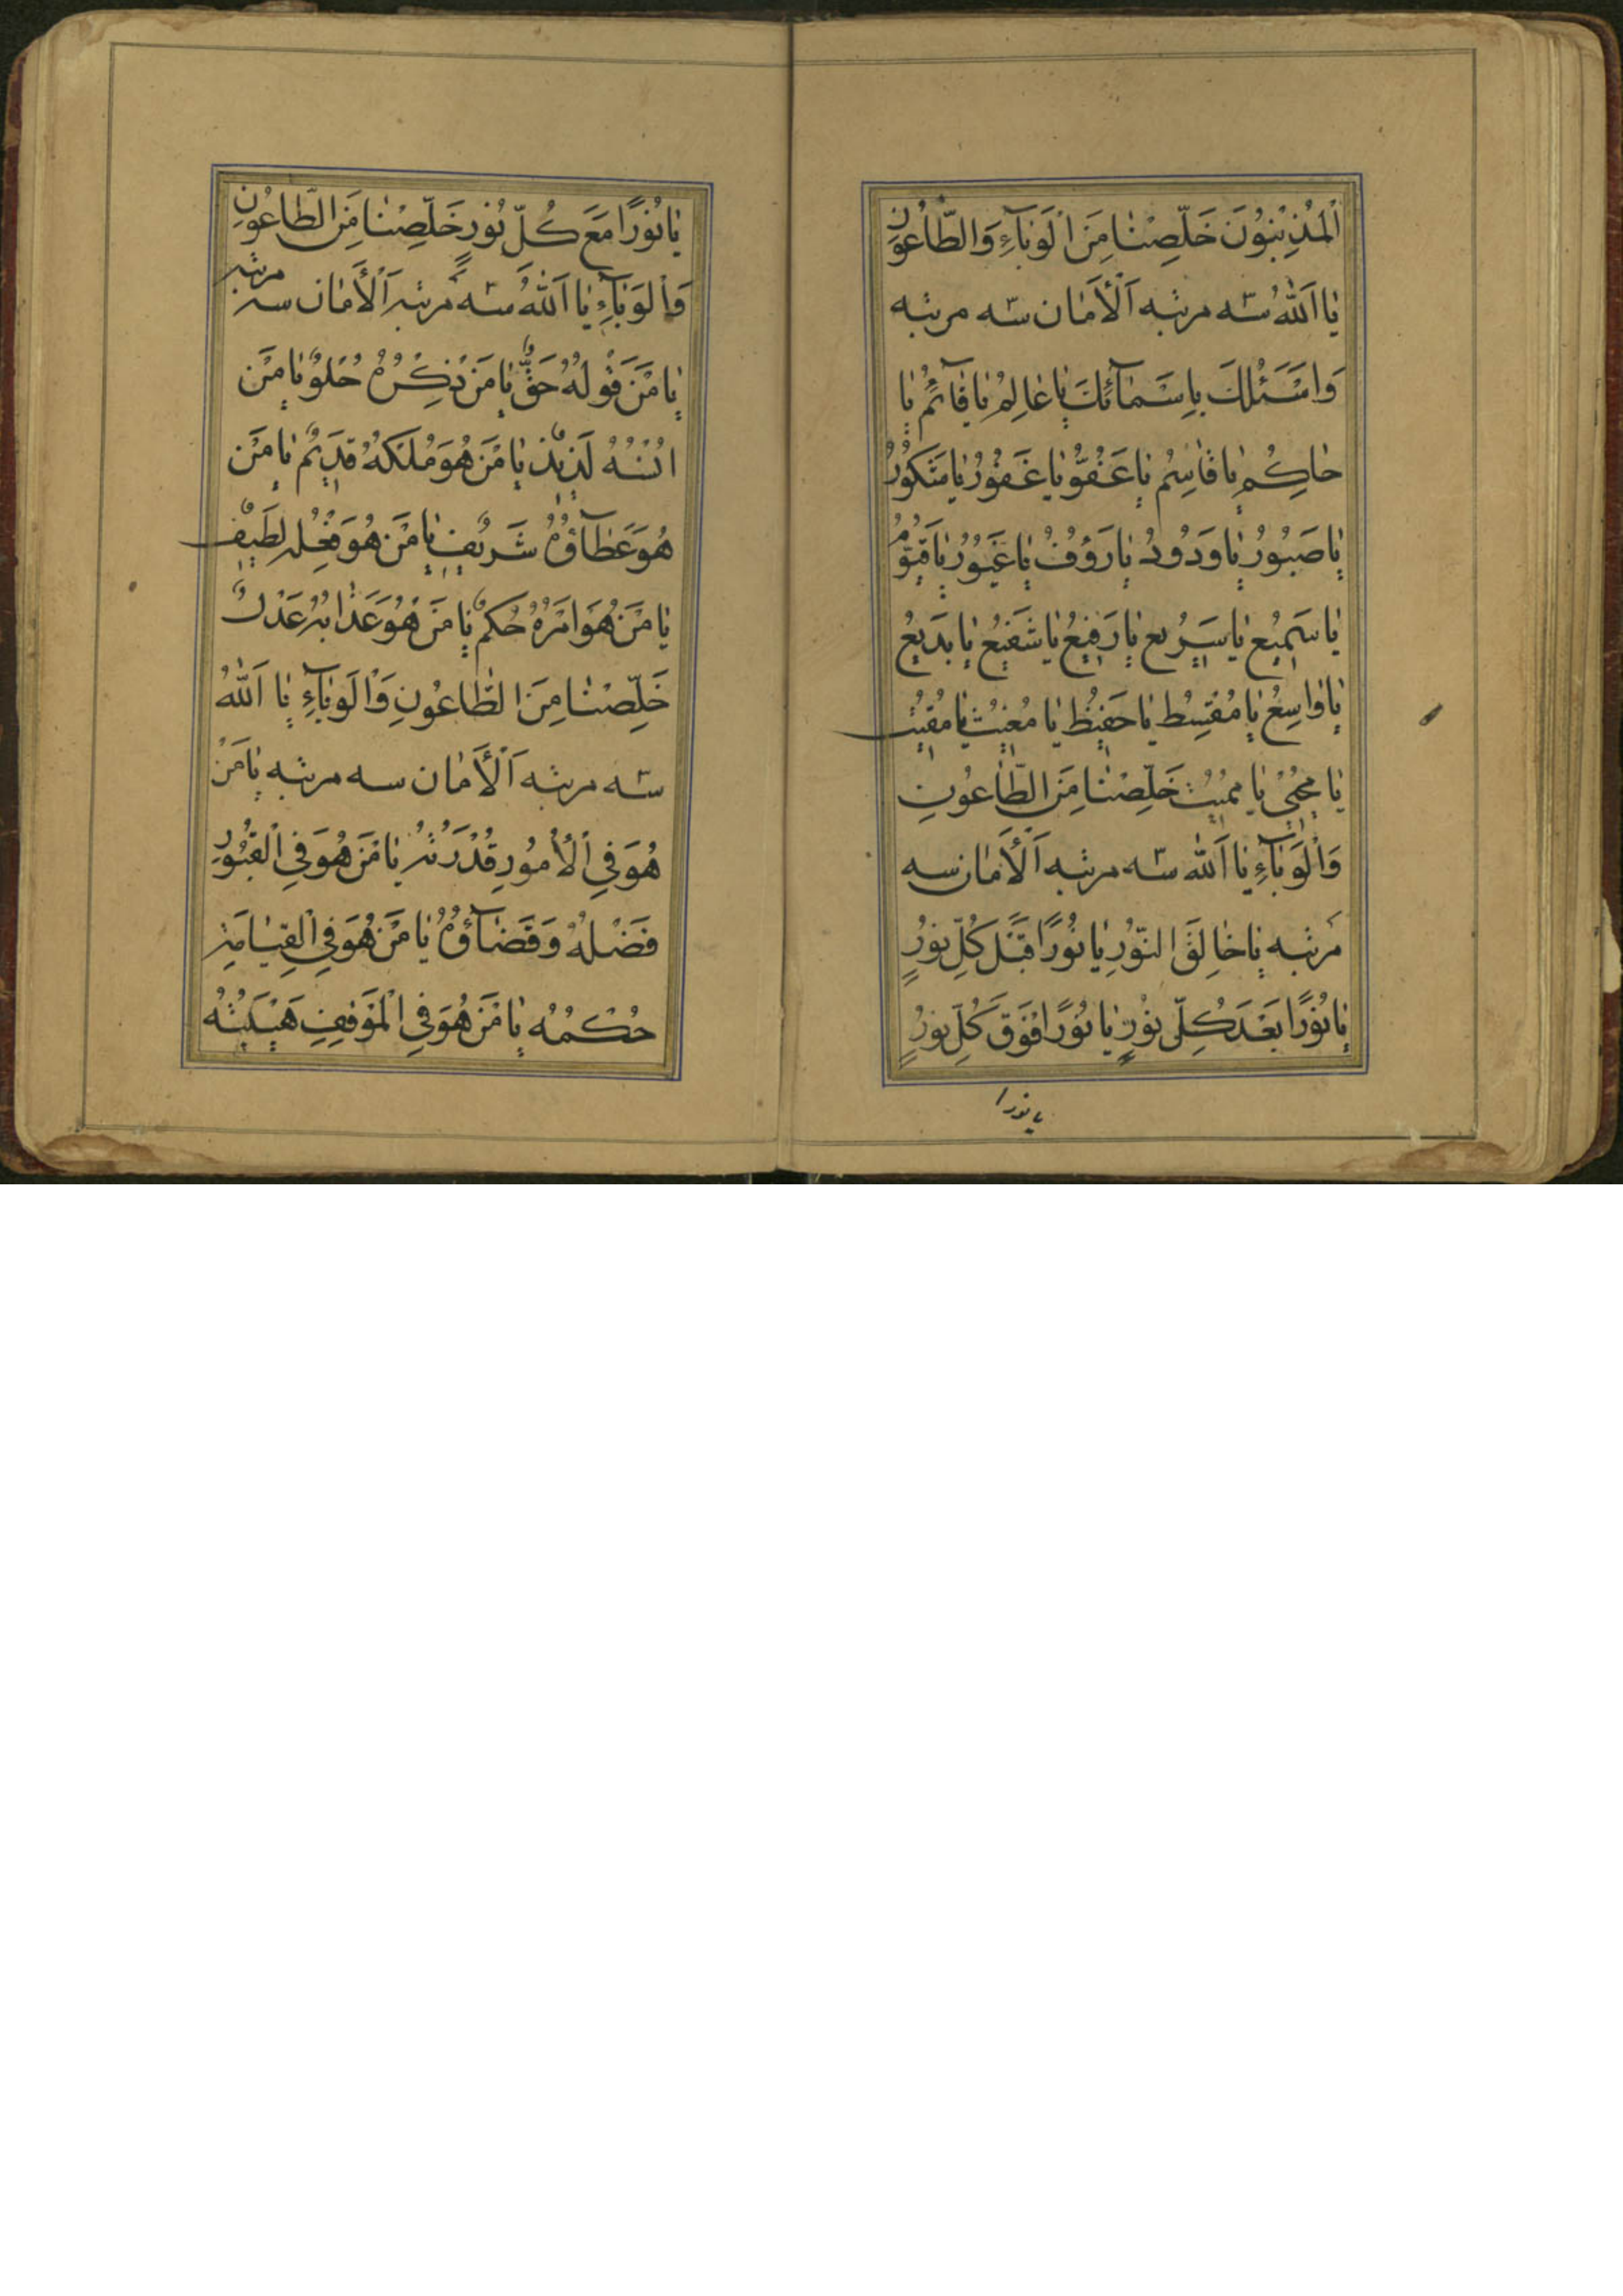 اَلْمُذْنِبُونَ خَلِّصْنَا مِنَ الْوَبَآءِ وَالطَّاعُونِ
يَا اَللّٰهُ سّه مرتبه اَلْأَمَان سّه مرتبه
وَاَسْئَلُكَ بِاِسْمَآئِكَ يَا عَالِمُ يَا قَآئِمُ يَا
حَاكِمُ يَا قَاسِمُ يَا عَفُوُّ يَا غَفُورُ يَا شَكُورُ
يَا صَبُورُ يَا وَدُودُ يَا رَؤُفُ يَا غَيُورُ يَا قَيُّومُ
يَا سَمِيعُ يَا سَرِيعُ يَا رَفِيعُ يَا شَفِيعُ يَا بَدِيعُ
يَا وَاسِعُ يَا مُقْسِطُ يَا حَفِيظُ يَا مُغِيثُ يَا مُقِيتُ
يَا مُحْيِي يَا مُمِيتُ خَلِّصْنَا مِنَ الطَّاعُونِ
وَالْوَبَآءِ يَا اَللّٰه سّه مرتبه اَلْأَمَان سه
مرتبه يَا خَالِقَ النُّورِ يَا نُورًا قَبْلَ كُلِّ نُورٍ
يَا نُورًا بَعْدَ كُلِّ نُورٍ يَا نُورًا فَوْقَ كُلِّ نُورٍ
يا نورا
يَا نُورًا مَعَ كُلِّ نُورٍ خَلِّصْنَا مِنَ الطَّاعُونِ
وَالْوَبَآءِ يَا اَللّٰهُ سّه مرتبه اَلْأَمَان سه مرتبه
يَا مَنْ قَوْلُهُ حَقٌّ يَا مَنْ ذِكْرُهُ حُلْوٌ يَا مَنْ
اُنْسُهُ لَذِيذٌ يَا مَنْ هُوَ مُلْكُهُ قَدِيمٌ يَا مَنْ
هُوَ عَطَآؤُهُ شَرِيفٌ يَا مَنْ هُوَ فِعْلُهُ لَطِيفٌ
يَا مَنْ هُوَ اَمْرُهُ حُكْمٌ يَا مَنْ هُوَ عَذَابُهُ عَدْلٌ
خَلِّصْنَا مِنَ الطَّاعُونِ وَالْوَبَآءِ يَا اَللّٰهُ
سّه مرتبه اَلْأَمَان سه مرتبه يَا مَنْ
هُوَ فِي الْأُمُورِ قُدْرَتُهُ يَا مَنْ هُوَ فِي الْقُبُورِ
فَضْلُهُ وَقَضَآؤُهُ يَا مَنْ هُوَ فِي الْقِيَامَةِ
حُكْمُهُ يَا مَنْ هُوَ فِي الْمَوْقِفِ هَيْبَتُهُ